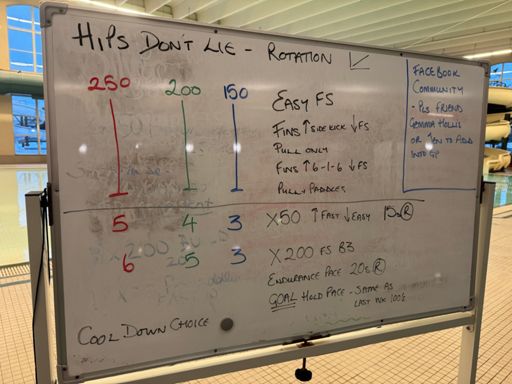 HIPS DON'T LIE - ROTATION
250 200 150
EASY FS
FINS ↑ SIDE KICK ↓ FS
PULL ONLY
FINS ↑ 6-1-6 ↓ FS
PULL + PADDLES
5 4 3 X50 ↑ FAST ↓ EASY 15s R
6 5 3 X200 FS B3
ENDURANCE PACE 20s R
GOAL HOLD PACE - SAME AS
LAST WK 100's
COOL DOWN CHOICE
FACEBOOK
COMMUNITY
- PLS FRIEND
GEMMA HOLLIS
OR JEN TO ADD
INTO GP